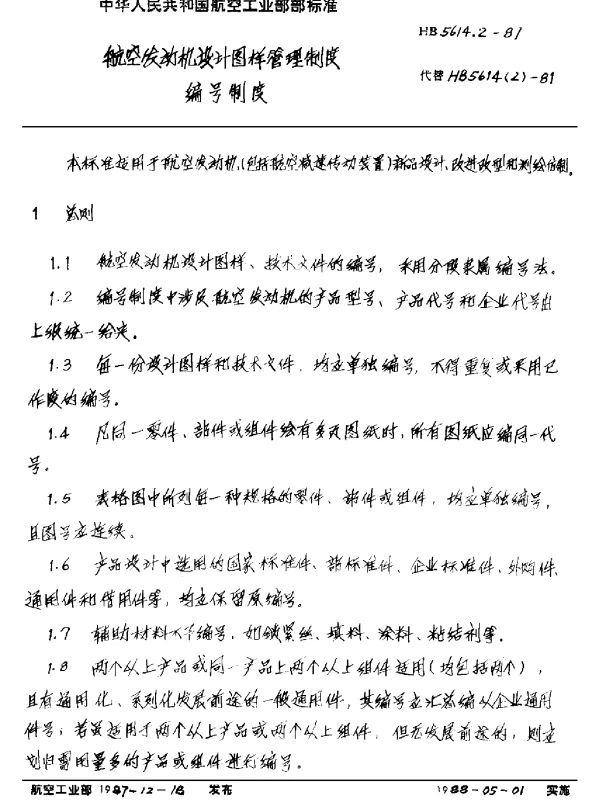 中华人民共和国航空工业部部标准
HB5614.2-87
航空发动机设计图样管理制度
编号制度
代替 HB5614(2)-81
本标准适用于航空发动机(包括航空减速传动装置)新品设计、改进改型和测绘仿制。
1 总则
1.1 航空发动机设计图样、技术文件的编号,采用分段隶属编号法。
1.2 编号制度中涉及航空发动机的产品型号、产品代号和企业代号由
上级统一给定。
1.3 每一份设计图样和技术文件,均应单独编号,不得重复或采用已
作废的编号。
1.4 凡同一零件、部件或组件绘有多页图纸时,所有图纸应编同一代
号。
1.5 表格图中所列每一种规格的零件、部件或组件,均应单独编号,
且图号应连续。
1.6 产品设计中选用的国家标准件、部标准件、企业标准件、外购件、
通用件和借用件等,均应保留原编号。
1.7 辅助材料不予编号,如锁紧丝、填料、涂料、粘结剂等。
1.8 两个以上产品或同一产品上两个以上组件适用(均包括两个),
且有通用化、系列化发展前途的一般通用件,其编号应汇总编从企业通用
件号;若虽适用于两个以上产品或两个以上组件,但无发展前途的,则应
划归需用量多的产品或组件进行编号。
航空工业部 1987-12-18 发布
1988-05-01 实施